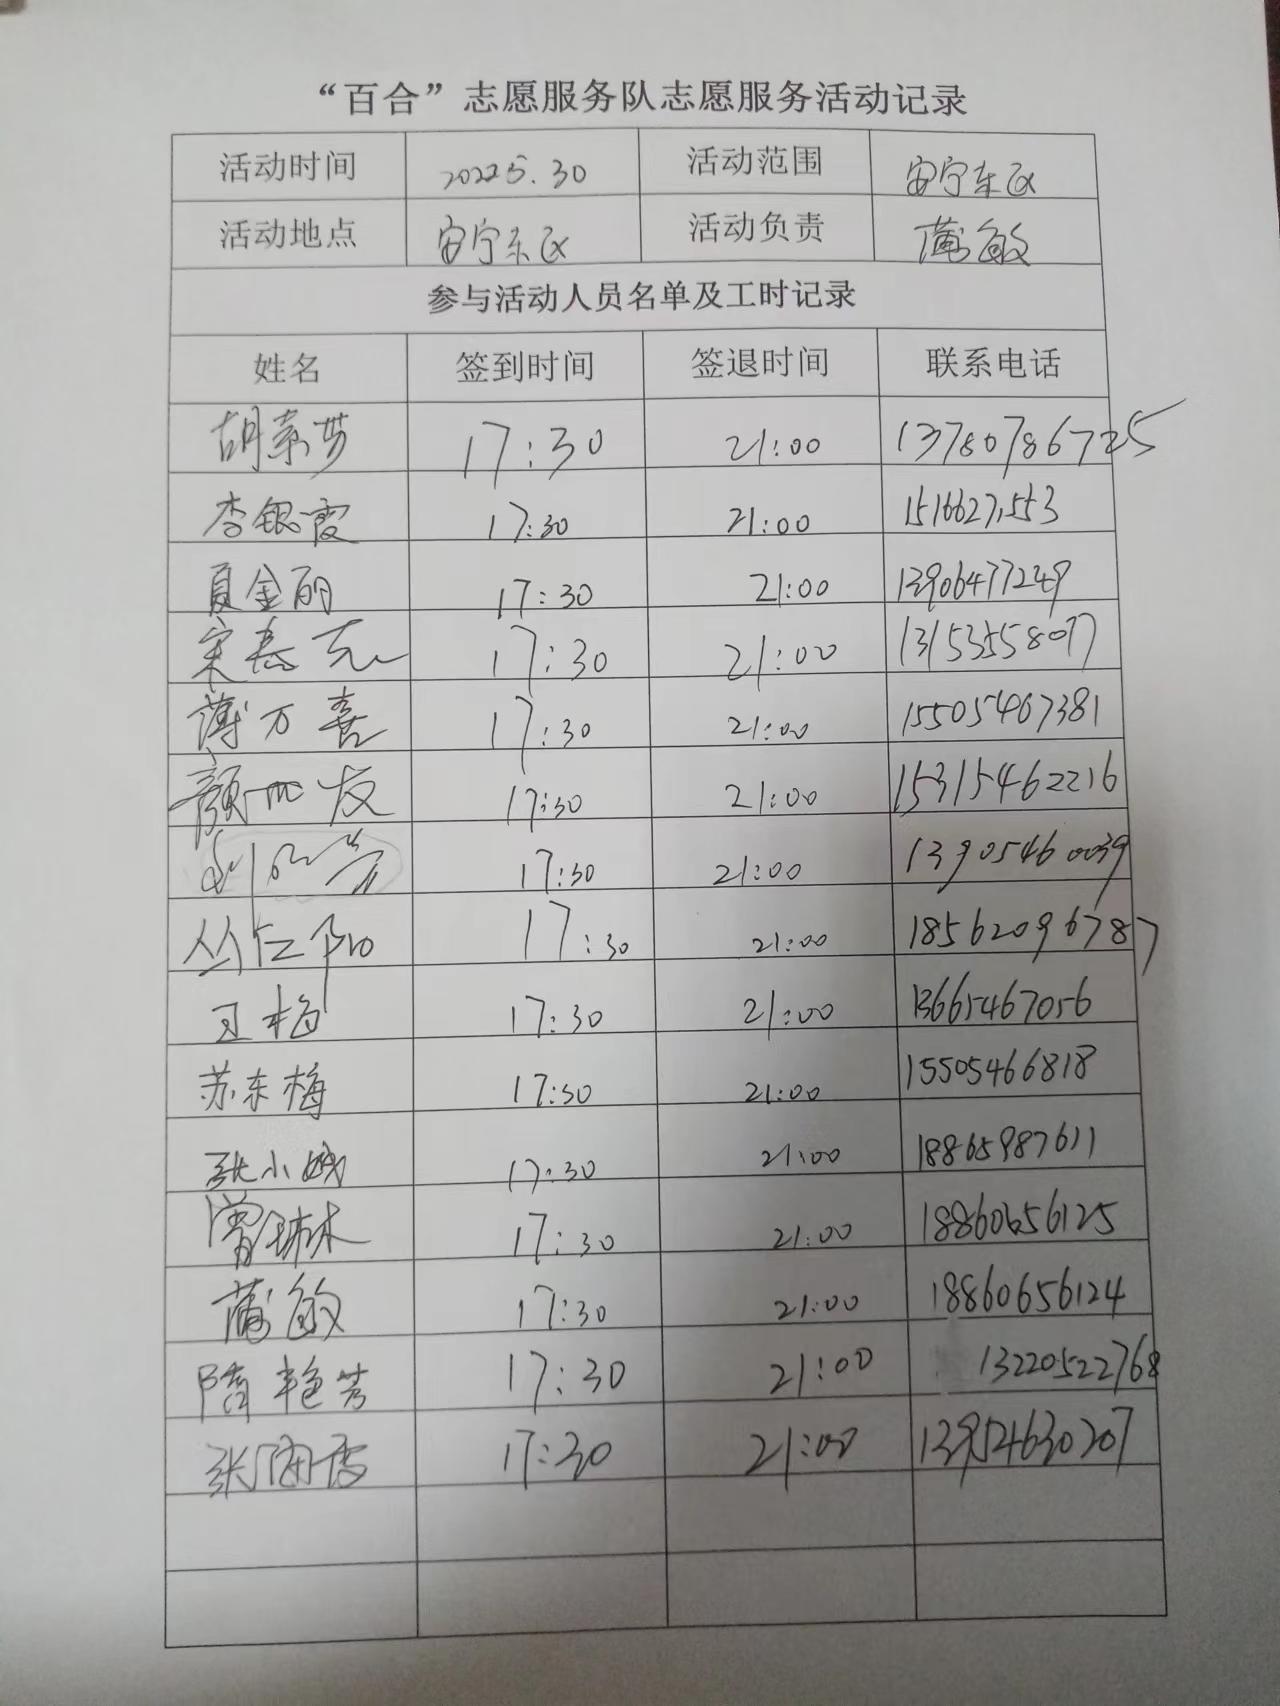 “百合”志愿服务队志愿服务活动记录
活动时间 2022 5.30 活动范围 安宁东区
活动地点 安宁东区 活动负责 蒲敏
参与活动人员名单及工时记录
姓名 签到时间 签退时间 联系电话
胡 17:30 21:00 13780786725
李银霞 17:30 21:00
夏金丽 17:30 21:00 13906477249
宋 17:30 21:00 13153558077
薄万喜 17:30 21:00 15505467381
颜 17:30 21:00 15315462216
17:30 21:00 13905460039
丛仁 17:30 21:00 18562096787
王梅 17:30 21:00 13665467056
苏东梅 17:30 21:00 15505466818
张小娥 17:30 21:00 18865987611
曾琳 17:30 21:00 18860656125
蒲敏 17:30 21:00 18860656124
隋艳芳 17:30 21:00 13220522768
张 17:30 21:00 13954630207